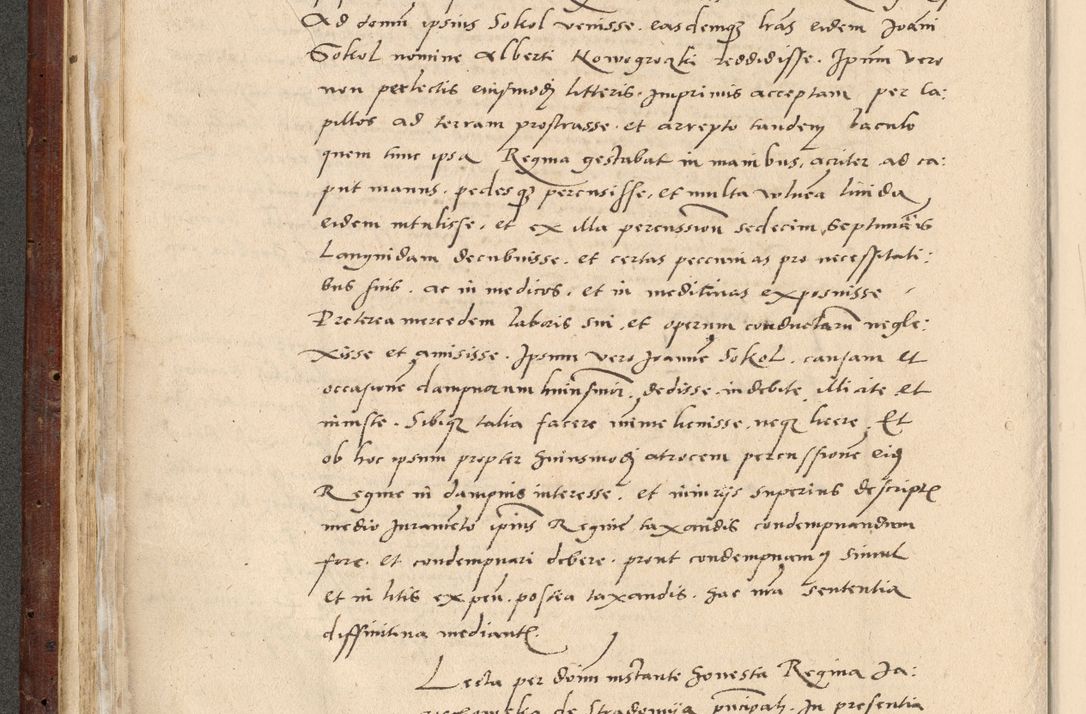 Ad domum ipsius Sokol venisse. easdemqz lras eidem Joāni
Sokol nomine Alberti Nowogroczki reddidisse. Ipsum vero
non perlectis eiusmodi litteris. Inprimis acceptam per ca:
pillos ad terram prostrasse. et arrepto tandem baculo
quem tunc ipsa Regina gestabat in manibus, acriter ad ca:
put manus. pedesqz percussisse, et multa vulnera livida
eidem intulisse. et ex illa percussione sedecim septimanis
Languidam decubuisse. et certas peccunias pro necessitati:
bus suis. ac in medicos. et in medicinas exposuisse
Preterea mercedem laboris sui et operum conductarum negle:
xisse et amisisse. Ipsum vero Joannē Sokol. causam et
occasionē dampnorum huiusmōi. dedisse. indebite illicite et
iniuste. Sibiqz talia facere mīme licuisse. neqz licere. Et
ob hoc ipsum propter huiusmodi atrocem percussionē eius
Regine in dampnis interesse. et iniurijs superius descriptis
medio Juramēto ipius Regine taxandis condempnandum
fore. et condempnari debere. prout condempnamus simul
et in litis expen. postea taxandis. hac nra sententia
diffinitiva mediante.
Lecta per dōnum instante honesta Regina Ja:
de Stradomija pncipali. In presentia